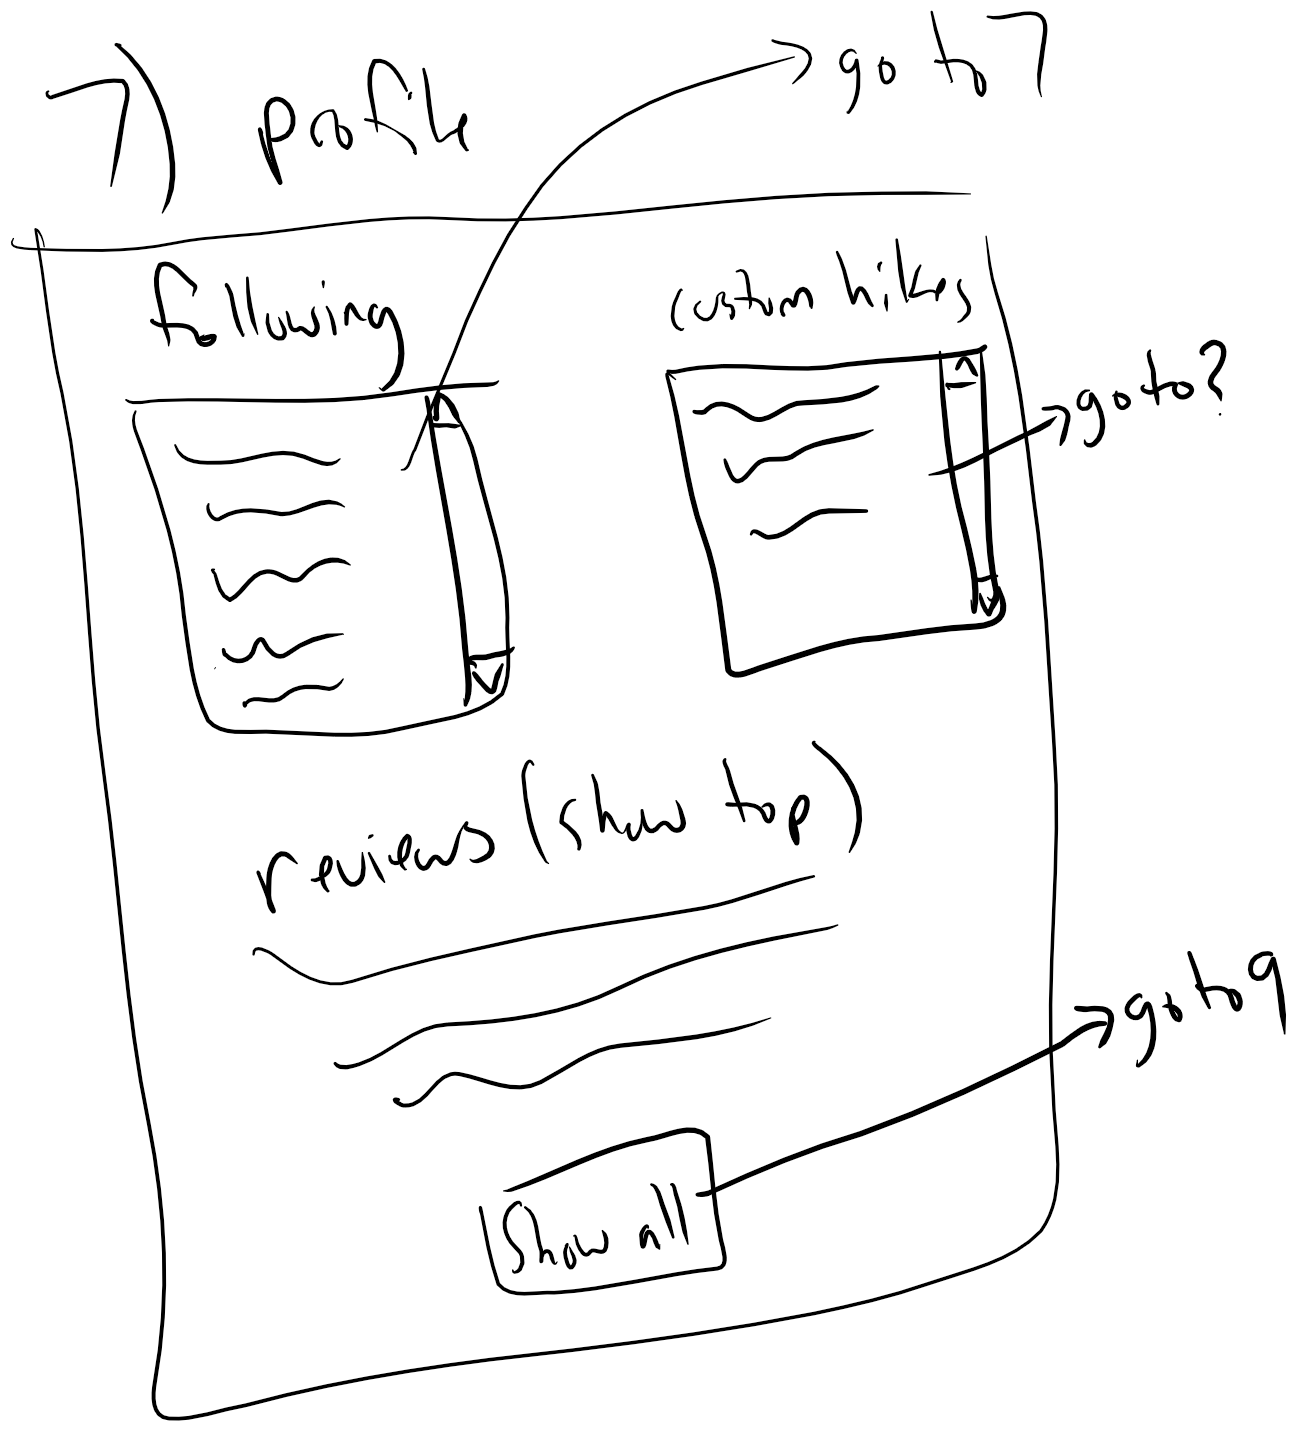 7) profile
go to 7
following
custom hikes
go to ?
reviews (show top)
go to 9
Show all